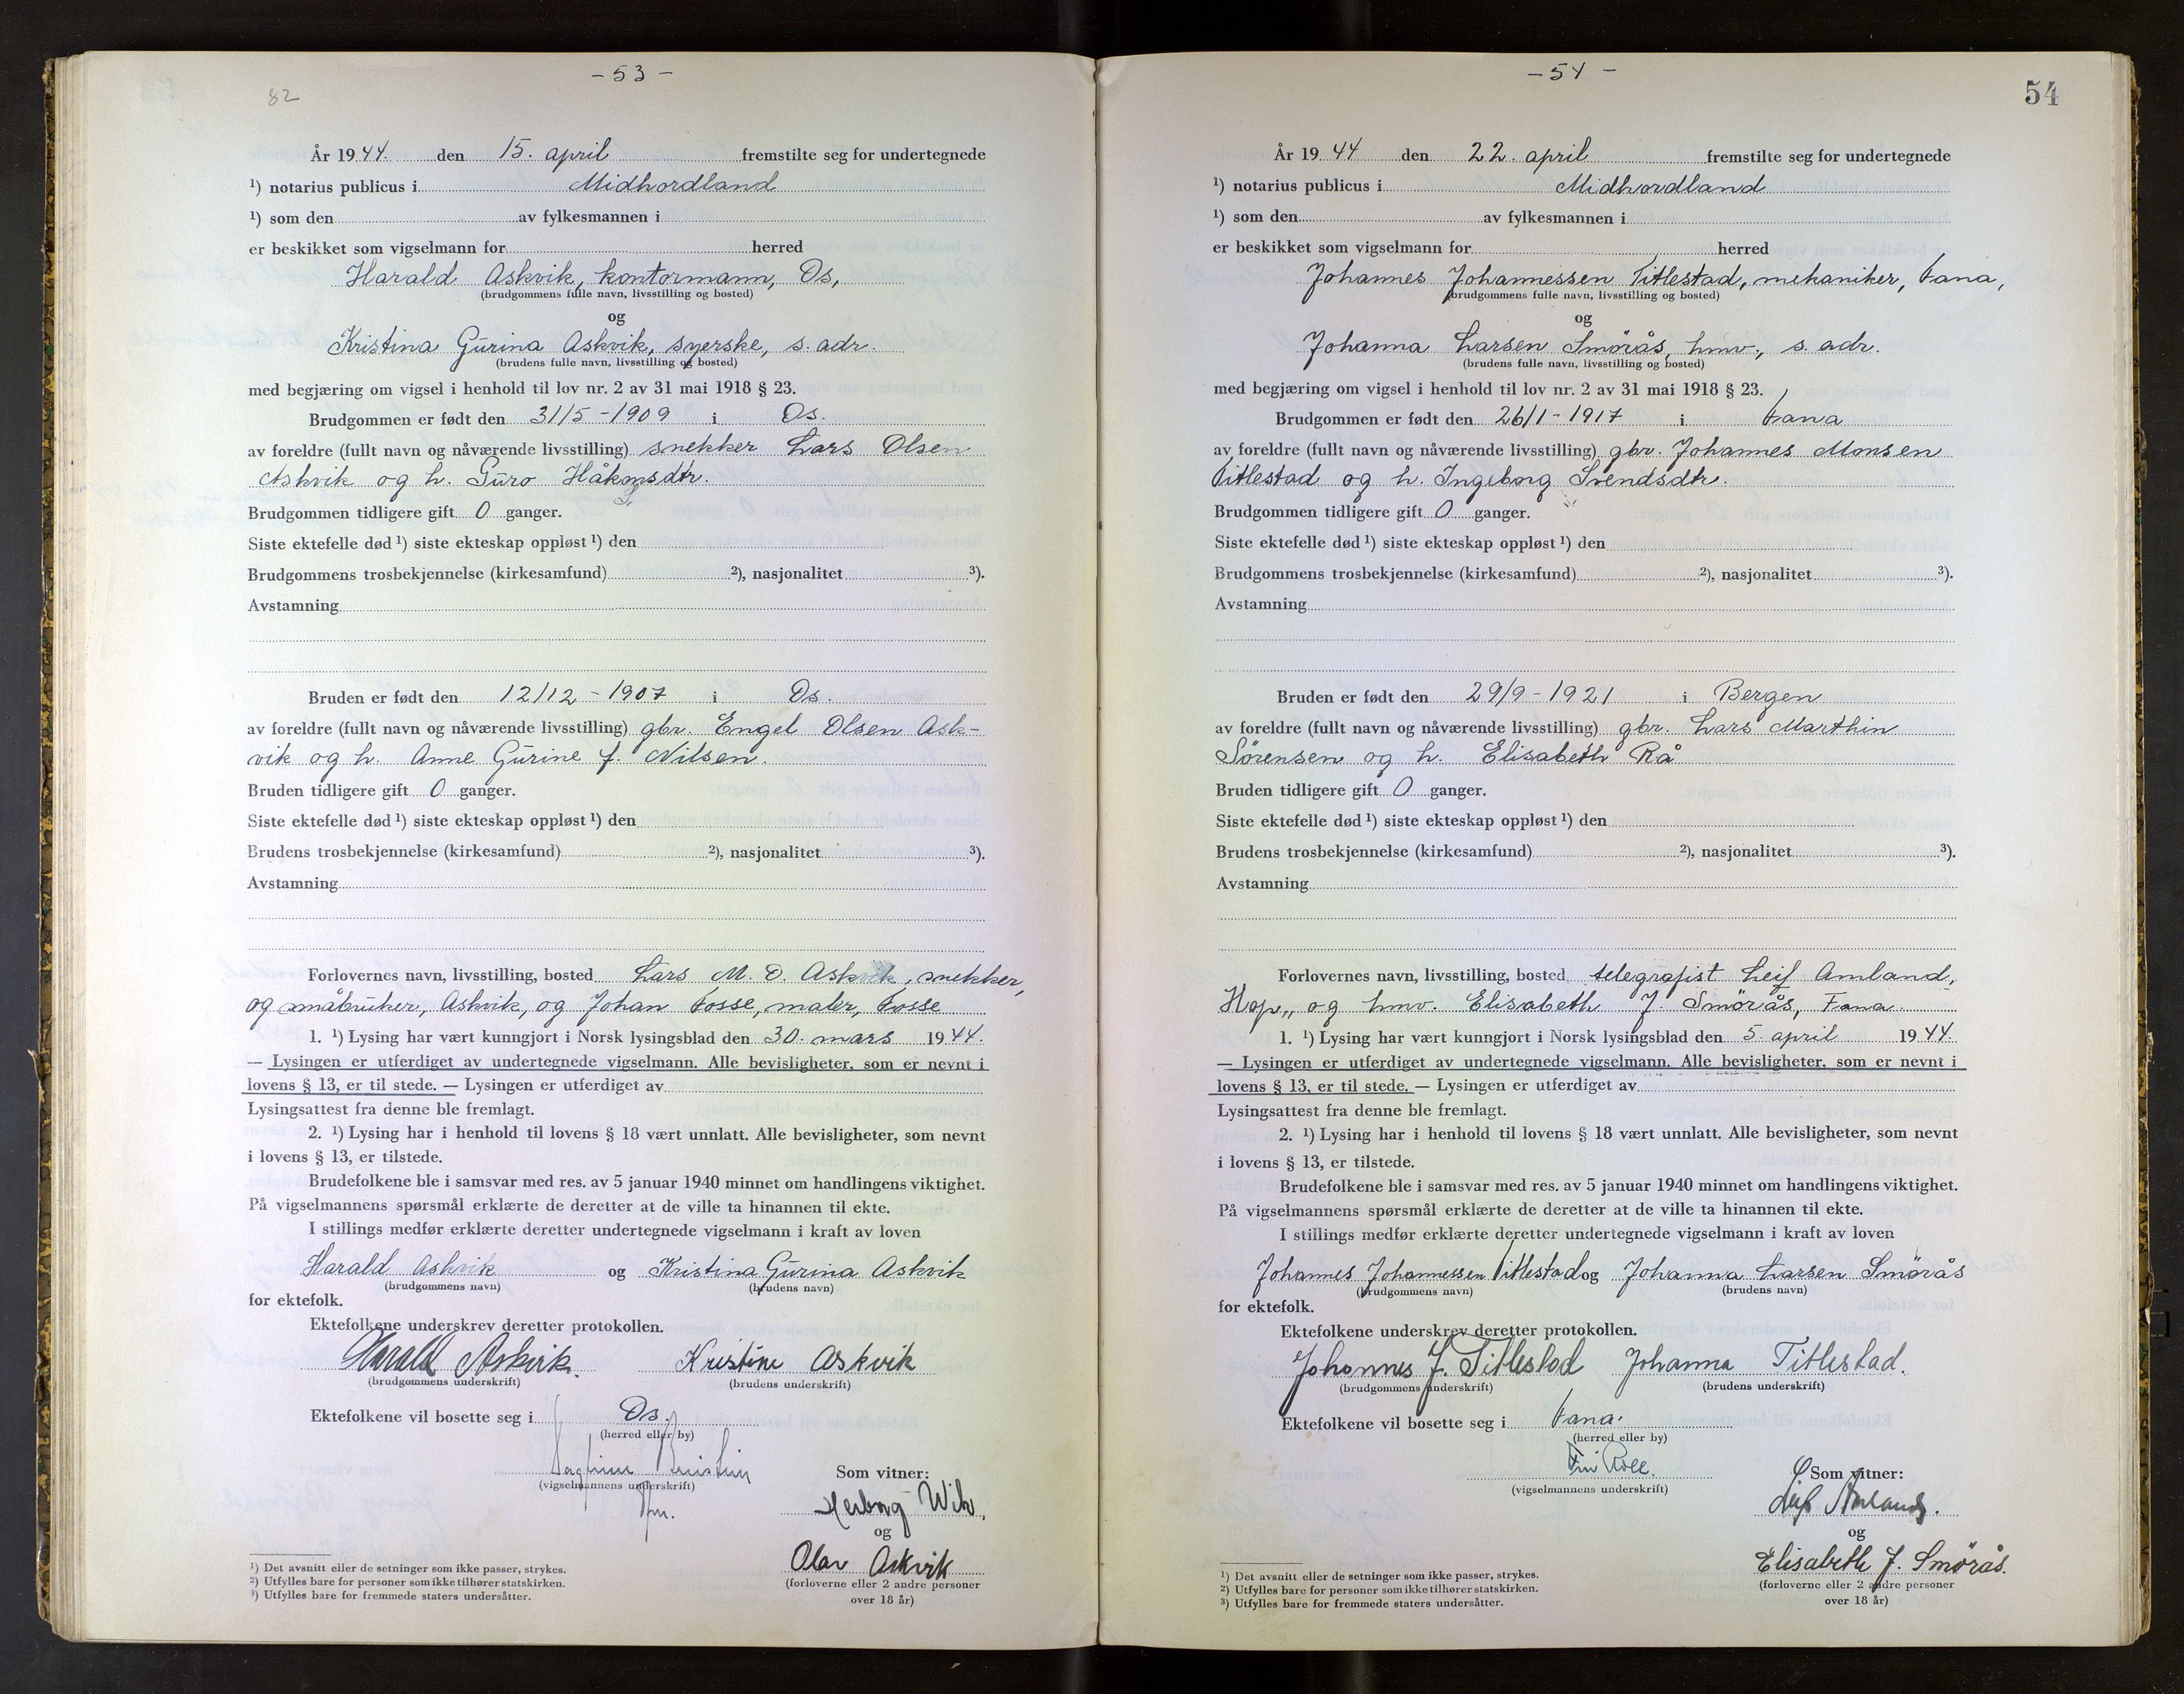 - 53 -
82
År 1944. den 15. april fremstilte seg for undertegnede
¹) notarius publicus i Midhordland
¹) som den av fylkesmannen i
er beskikket som vigselmann for herred
Harald Askvik, kontormann, Os,
(brudgommens fulle navn, livsstilling og bosted)
og
Kristina Gurina Askvik, syerske, s. adr.
(brudens fulle navn, livsstilling og bosted)
med begjæring om vigsel i henhold til lov nr. 2 av 31 mai 1918 § 23.
Brudgommen er født den 31/5 - 1909 i Os.
av foreldre (fullt navn og nåværende livsstilling) snekker Lars Olsen
Askvik og h. Guro Håkonsdtr.
Brudgommen tidligere gift 0 ganger.
Siste ektefelle død ¹) siste ekteskap oppløst ¹) den
Brudgommens trosbekjennelse (kirkesamfund) ²), nasjonalitet ³).
Avstamning
Bruden er født den 12/12 - 1907 i Os.
av foreldre (fullt navn og nåværende livsstilling) gbr. Engel Olsen Ask-
vik og h. Anne Gurine f. Nilsen.
Bruden tidligere gift 0 ganger.
Siste ektefelle død ¹) siste ekteskap oppløst ¹) den
Brudens trosbekjennelse (kirkesamfund) ²), nasjonalitet ³).
Avstamning
Forlovernes navn, livsstilling, bosted Lars M. O. Askvik, snekker,
og småbruker, Askvik, og Johan Fosse, maler, Fosse
1. ¹) Lysing har vært kunngjort i Norsk lysingsblad den 30. mars 1944.
— Lysingen er utferdiget av undertegnede vigselmann. Alle bevisligheter, som er nevnt i
lovens § 13, er til stede. — Lysingen er utferdiget av
Lysingsattest fra denne ble fremlagt.
2. ¹) Lysing har i henhold til lovens § 18 vært unnlatt. Alle bevisligheter, som nevnt
i lovens § 13, er tilstede.
Brudefolkene ble i samsvar med res. av 5 januar 1940 minnet om handlingens viktighet.
På vigselmannens spørsmål erklærte de deretter at de ville ta hinannen til ekte.
I stillings medfør erklærte deretter undertegnede vigselmann i kraft av loven
Harald Askvik og Kristina Gurina Askvik
(brudgommens navn) (brudens navn)
for ektefolk.
Ektefolkene underskrev deretter protokollen.
Harald Askvik. Kristine Askvik
(brudgommens underskrift) (brudens underskrift)
Ektefolkene vil bosette seg i Os.
(herred eller by)
(vigselmannens underskrift)
Som vitner:
Herborg Wik.
og
Olav Askvik
(forloverne eller 2 andre personer
over 18 år)
¹) Det avsnitt eller de setninger som ikke passer, strykes.
²) Utfylles bare for personer som ikke tilhører statskirken.
³) Utfylles bare for fremmede staters undersåtter.
- 54 -
54
År 1944 den 22. april fremstilte seg for undertegnede
¹) notarius publicus i Midhordland
¹) som den av fylkesmannen i
er beskikket som vigselmann for herred
Johannes Johannessen Titlestad, mekaniker, Fana,
(brudgommens fulle navn, livsstilling og bosted)
og
Johanna Larsen Smörås, hmv., s. adr.
(brudens fulle navn, livsstilling og bosted)
med begjæring om vigsel i henhold til lov nr. 2 av 31 mai 1918 § 23.
Brudgommen er født den 26/1 - 1917 i Fana
av foreldre (fullt navn og nåværende livsstilling) gbr. Johannes Monsen
Titlestad og h. Ingeborg Svendsdtr.
Brudgommen tidligere gift 0 ganger.
Siste ektefelle død ¹) siste ekteskap oppløst ¹) den
Brudgommens trosbekjennelse (kirkesamfund) ²), nasjonalitet ³).
Avstamning
Bruden er født den 29/9 - 1921 i Bergen
av foreldre (fullt navn og nåværende livsstilling) gbr. Lars Marthin
Sörensen og h. Elisabeth Rå
Bruden tidligere gift 0 ganger.
Siste ektefelle død ¹) siste ekteskap oppløst ¹) den
Brudens trosbekjennelse (kirkesamfund) ²), nasjonalitet ³).
Avstamning
Forlovernes navn, livsstilling, bosted telegrafist Leif Amland,
Hop,, og hmv. Elisabeth J. Smörås, Fana.
1. ¹) Lysing har vært kunngjort i Norsk lysingsblad den 5. april 1944.
— Lysingen er utferdiget av undertegnede vigselmann. Alle bevisligheter, som er nevnt i
lovens § 13, er til stede. — Lysingen er utferdiget av
Lysingsattest fra denne ble fremlagt.
2. ¹) Lysing har i henhold til lovens § 18 vært unnlatt. Alle bevisligheter, som nevnt
i lovens § 13, er tilstede.
Brudefolkene ble i samsvar med res. av 5 januar 1940 minnet om handlingens viktighet.
På vigselmannens spørsmål erklærte de deretter at de ville ta hinannen til ekte.
I stillings medfør erklærte deretter undertegnede vigselmann i kraft av loven
Johannes Johannessen Titlestad og Johanna Larsen Smörås
(brudgommens navn) (brudens navn)
for ektefolk.
Ektefolkene underskrev deretter protokollen.
Johannes J. Titlestad Johanna Titlestad.
(brudgommens underskrift) (brudens underskrift)
Ektefolkene vil bosette seg i Fana.
(herred eller by)
(vigselmannens underskrift)
Som vitner:
Leif Amland.
og
Elisabeth J. Smörås.
(forloverne eller 2 andre personer
over 18 år)
¹) Det avsnitt eller de setninger som ikke passer, strykes.
²) Utfylles bare for personer som ikke tilhører statskirken.
³) Utfylles bare for fremmede staters undersåtter.